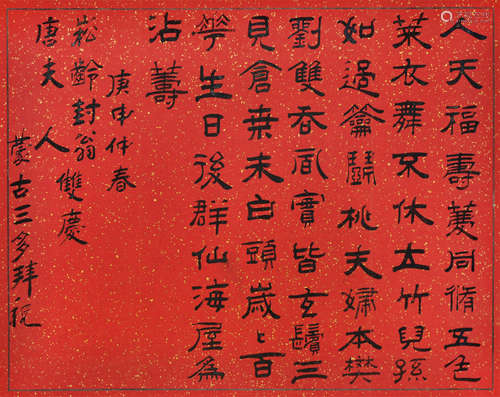 人天福壽羨同脩五色
萊衣舞不休大竹兒孫
如過籥鬭桃夫婦本樊
劉雙吞實皆玄鬢三
見倉桑未白頭歲〻百
華生日後群仙海屋為
沾籌
庚申仲春
崧齡封翁雙慶
唐夫人
蒙古三多拜祝